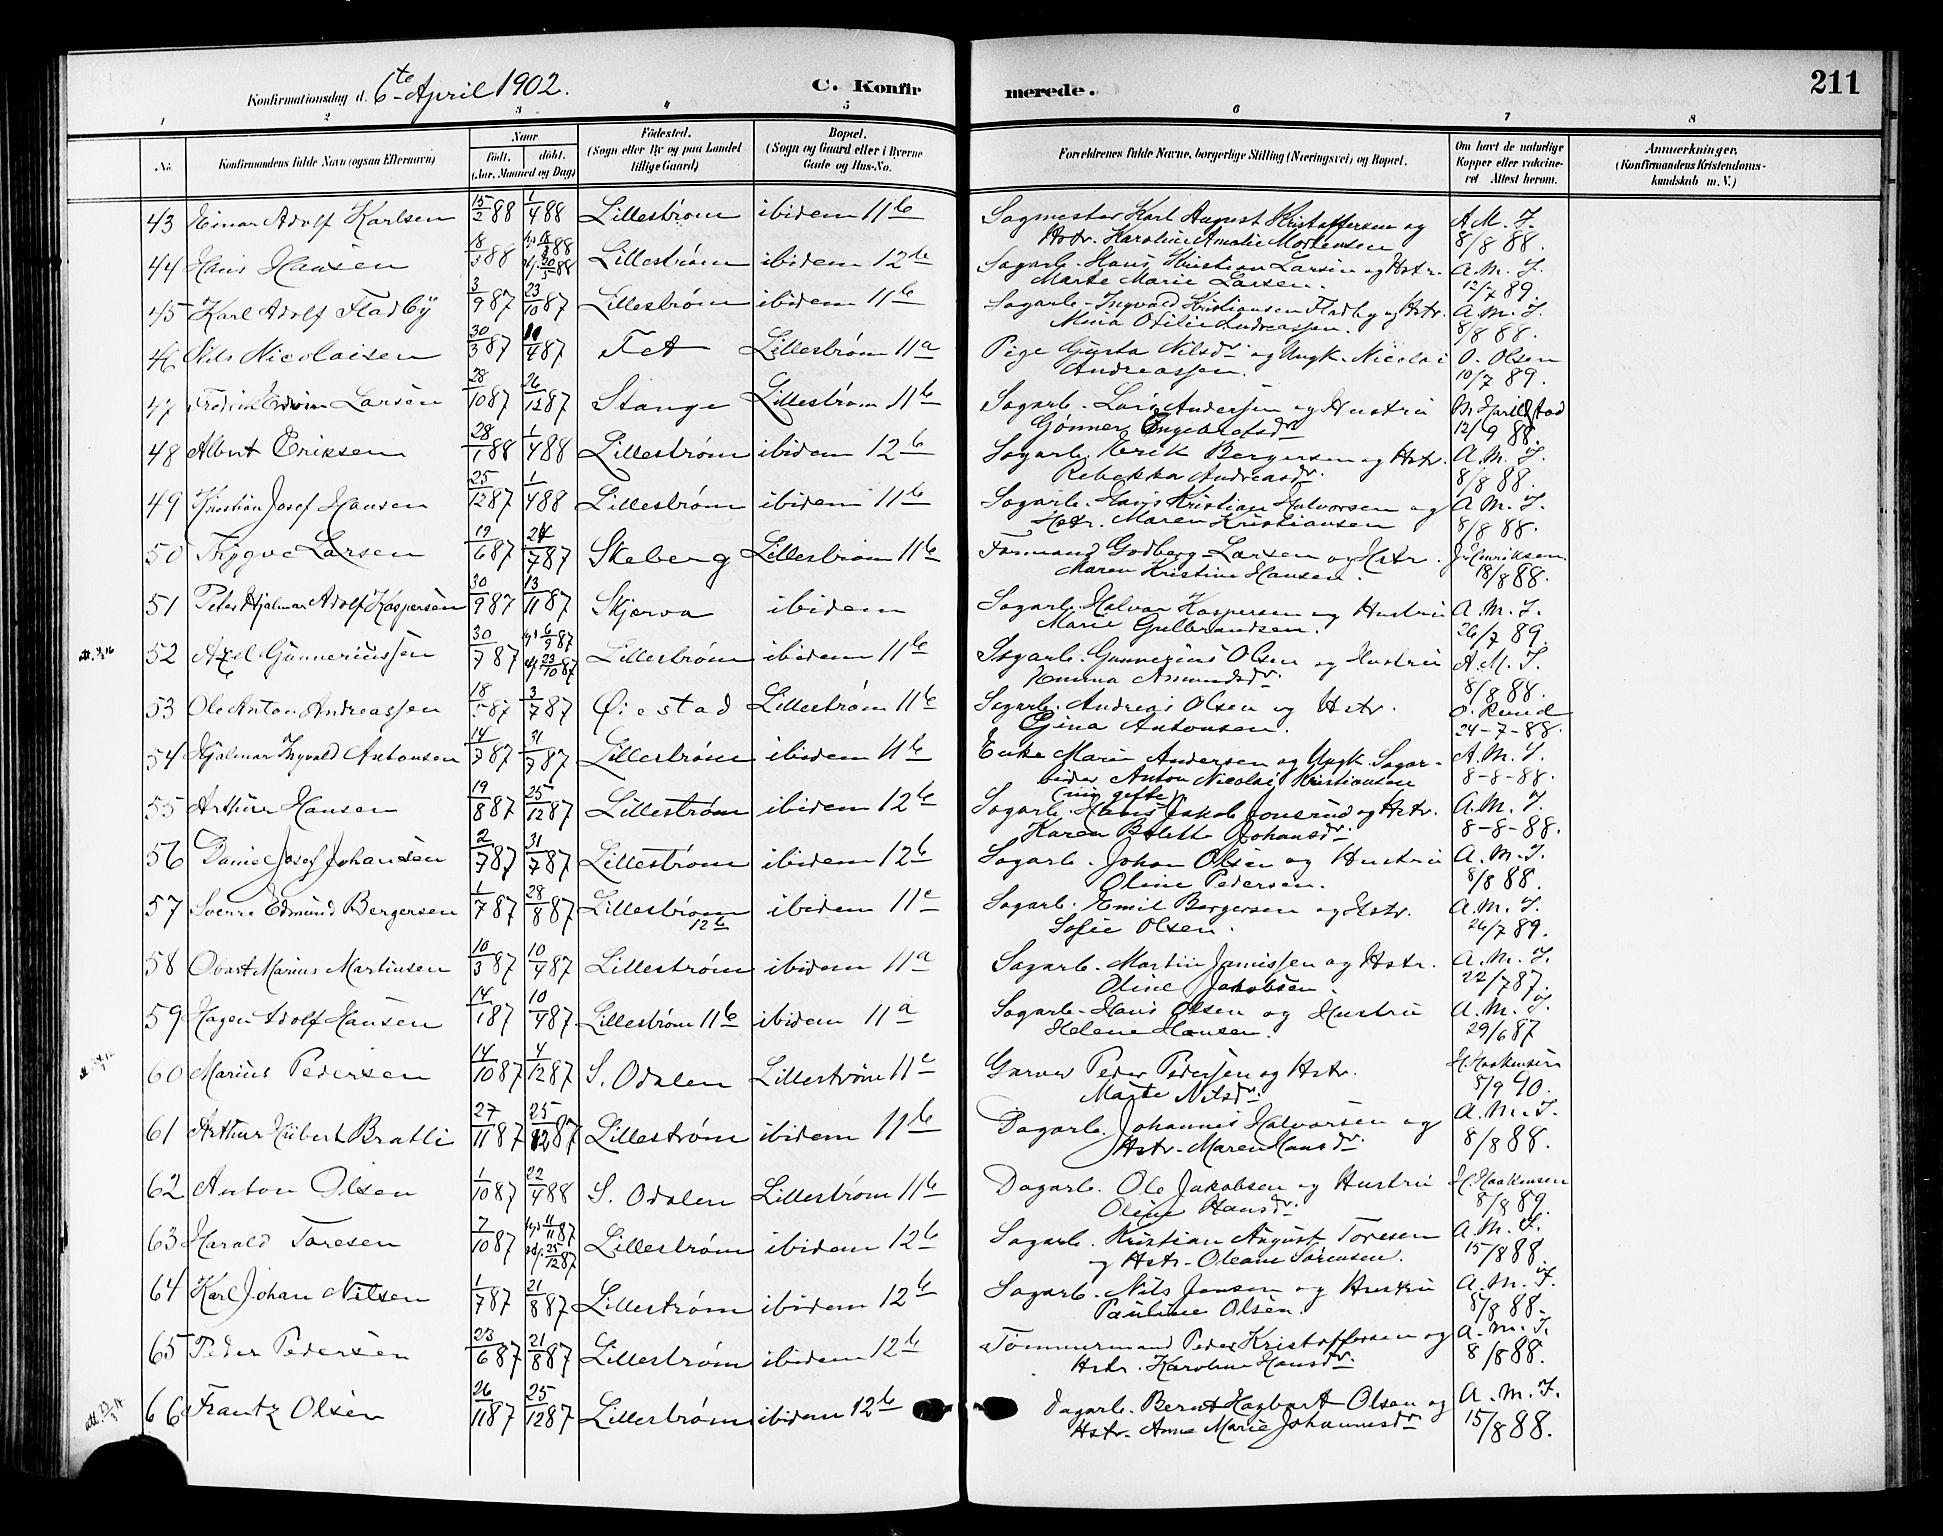 Konfirmationsdag d. 6te April 1902. C. Konfirmerede. 211
1 2 3 4 5 6 7 8
No. Konfirmandens fulde Navn (ogsaa Efternavn) Naar født. døbt. (Aar, Maaned og Dag) Fødested. (Sogn eller By og paa Landet tillige Gaard) Bopæl. (Sogn og Gaard eller i Byerne Gade og Hus-No. Forældrenes fulde Navne, borgerlige Stilling (Næringsvei) og Bopæl. Om havt de naturlige Kopper eller vakcineret Attest herom. Anmerkninger. (Konfirmandens Kristendomskundskab m. V.)
43 Einar Adolf Karlsen 15/2 88 1/4 88 Lillestrøm ibidem 11b Sagmester Karl August Kristoffersen og A. M. J.
Hstr. Karoline Amalie Mortensen 8/8 88.
44 Hans Hansen 18/3 88 Lillestrøm ibidem 12b Sagarb. Hans Kristian Larsen og Hstr. A. M. J.
Marte Marie Larsen. 12/7 89.
45 Karl Adolf Fladby 3/9 87 23/10 87 Lillestrøm ibidem 11b Sagarb. Ingvald Kristiansen Fladby og Hstr. A. M. J.
Mina Otilie Andreassen. 8/8 88.
46 Nils Nicolaisen 30/3 87 /4 87 Fet Lillestrøm 11a Pige Gusta Nilsdr. og Ungk. Nicolai O. Olsen
Andreassen. 10/7 89.
47 Fredrik Edvin Larsen 28/10 87 26/12 87 Stange Lillestrøm 11b Sagarb. Lars Andersen og Hustru
Gønner Engebretsdr. 12/9 88.
48 Albert Eriksen 28/1 88 1/4 88 Lillestrøm ibidem 12b Sagarb. Erik Bergersen og Hstr. A. M. J.
Rebekka Andreasdr. 8/8 88.
49 Kristian Josef Hansen 25/12 87 1/4 88 Lillestrøm ibidem 11b Sagarb. Hans Kristian Halvorsen og A. M. J.
Hstr. Maren Kristiansen 8/8 88.
50 Trygve Larsen 19/6 87 24/7 87 Skeberg Lillestrøm 11b Formand Godberg Larsen og Hstr. J. Henriksen
Maren Kristine Hansen. 18/8 88.
51 Peter Hjalmar Adolf Kaspersen 30/9 87 13/11 87 Skjerva ibidem Sagarb. Halvor Kaspersen og Hustru A. M. J.
Marie Gulbrandsen. 26/7 89.
52 Axel Gunneriussen 30/7 87 6/9 87 23/10 87 Lillestrøm ibidem 11b Sagarb. Gunnerius Olsen og Hustru A. M. J.
Emma Amundsdr. 8/8 88.
53 Ole Anton Andreassen 18/5 87 3/7 87 Øiestad Lillestrøm 11b Sagarb. Andreas Olsen og Hstr. O. Ruud
Gina Antonsen. 24-7-88.
54 Hjalmar Ingvald Antonsen 14/3 87 31/7 87 Lillestrøm ibidem 11b Enke Marie Andersen og Ungk. Sagar- A. M. J.
beider Anton Nicolai Kristiansen 8-8-88.
(nu gifte)
55 Arthur Hansen 19/8 87 25/12 87 Lillestrøm ibidem 12b Sagarb. Hans Jakob Jonsrud og Hstr. A. M. J.
Karen Bolette Johansdr. 8-8-88.
56 Daniel Josef Johansen 2/7 87 31/7 87 Lillestrøm ibidem 12b Sagarb. Johan Olsen og Hustru A. M. J.
Oline Pedersen. 8/8 88.
57 Sverre Edmund Bergersen 1/7 87 28/8 87 Lillestrøm 12b ibidem 11c Sagarb. Emil Bergersen og Hstr. A. M. J.
Sofie Olsen. 26/7 89.
58 Marius Martinsen 10/3 87 10/4 87 Lillestrøm ibidem 11a Sagarb. Martin Jamissen og Hstr. A. M. J.
Oline Jakobsen. 22/7 87.
59 Hagen Adolf Hansen 14/1 87 10/4 87 Lillestrøm 11b ibidem 11a Sagarb. Hans Olsen og Hustru A. M. J.
Helene Hansen. 29/6 87
60 Marius Pedersen 14/10 87 4/12 87 S. Odalen Lillestrøm 11c Garver Peder Pedersen og Hstr. H. Haakensen
Marte Nilsdr. 8/9 90.
61 Arthur Hubert Bratli 27/11 87 25/12 87 Lillestrøm ibidem 11b Dagarb. Johannes Halvorsen og A. M. J.
Hstr. Maren Hansdr. 8/8 88.
62 Anton Olsen 1/10 87 22/4 88 S. Odalen Lillestrøm 11b Dagarb. Ole Jakobsen og Hustru H. Haakensen
Oline Hansdr. 8/8 89.
63 Harald Toresen 7/10 87 11/11 87 25/12 87 Lillestrøm ibidem 12b Sagarb. Kristian August Toresen A. M. J.
og Hstr. Oleane Sørensen. 15/8 88.
64 Karl Johan Nilsen 1/7 87 21/8 87 Lillestrøm ibidem 12b Sagarb. Nils Jensen og Hustru A. M. J.
Pauline Olsen. 8/8 88.
65 Peder Pedersen 23/6 87 21/8 87 Lillestrøm ibidem 12b Tømmermand Peder Kristoffersen og A. M. J.
Hstr. Karoline Hansdr. 8/8 88.
66 Frantz Olsen 26/11 87 25/12 87 Lillestrøm ibidem 12b Dagarb. Bernt Hagbart Olsen og A. M. J.
Hstr. Anne Marie Johannesdr 15/8 88.